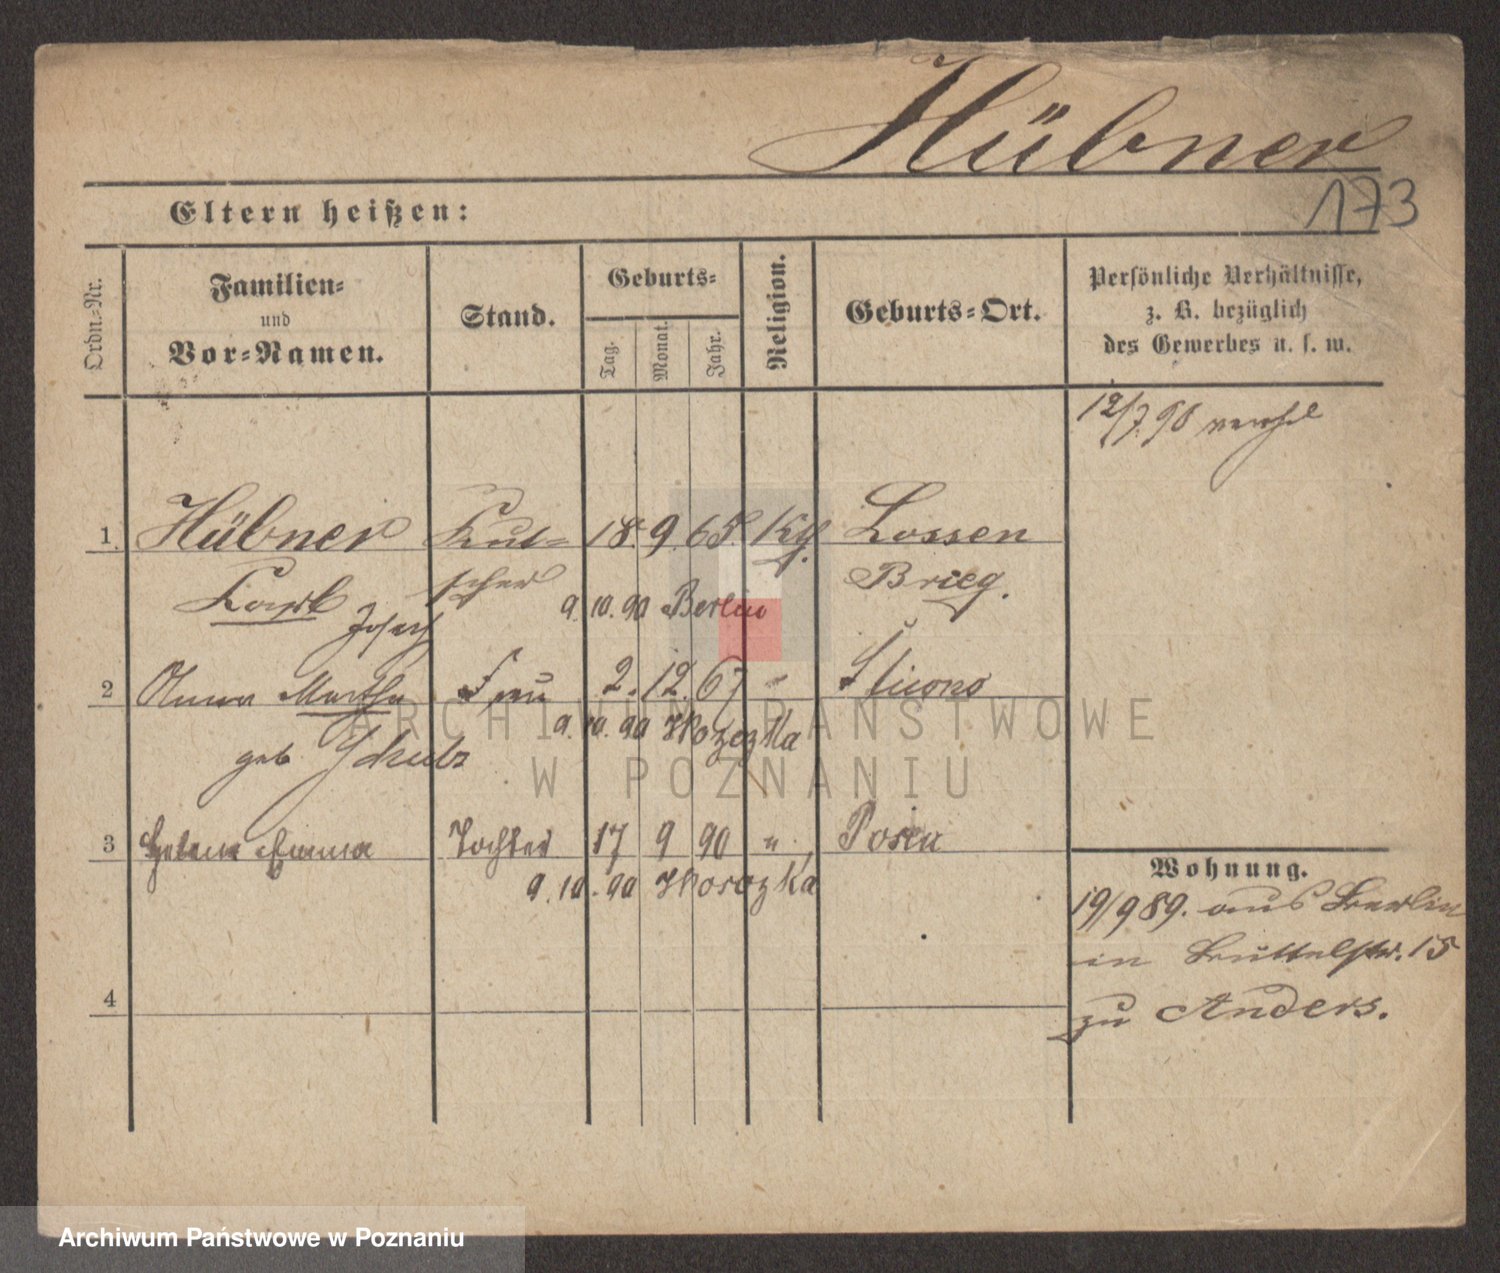 Hübner
173
Eltern heißen:
Ordn.-Nr.
Familien-
und
Vor-Namen.
Stand.
Geburts-
Tag.
Monat.
Jahr.
Religion.
Geburts-Ort.
Persönliche Verhältnisse,
z. B. bezüglich
des Gewerbes u. s. w.
12/7 90
1 Hübner Kut- 18. 9. 65. Kth. Lossen
Karl scher Brieg.
Josef 9. 10. 90 Berlin
2 Anna Martha Frau 2. 12. 67 "
9. 10. 90
geb
3 Helene Emma Tochter 17 9 90 " Posen
9. 10. 90
4
Wohnung.
19/9 89. aus Berlin
in 15
zu Anders.
ARCHIWUM PAŃSTWOWE
W POZNANIU
Archiwum Państwowe w Poznaniu